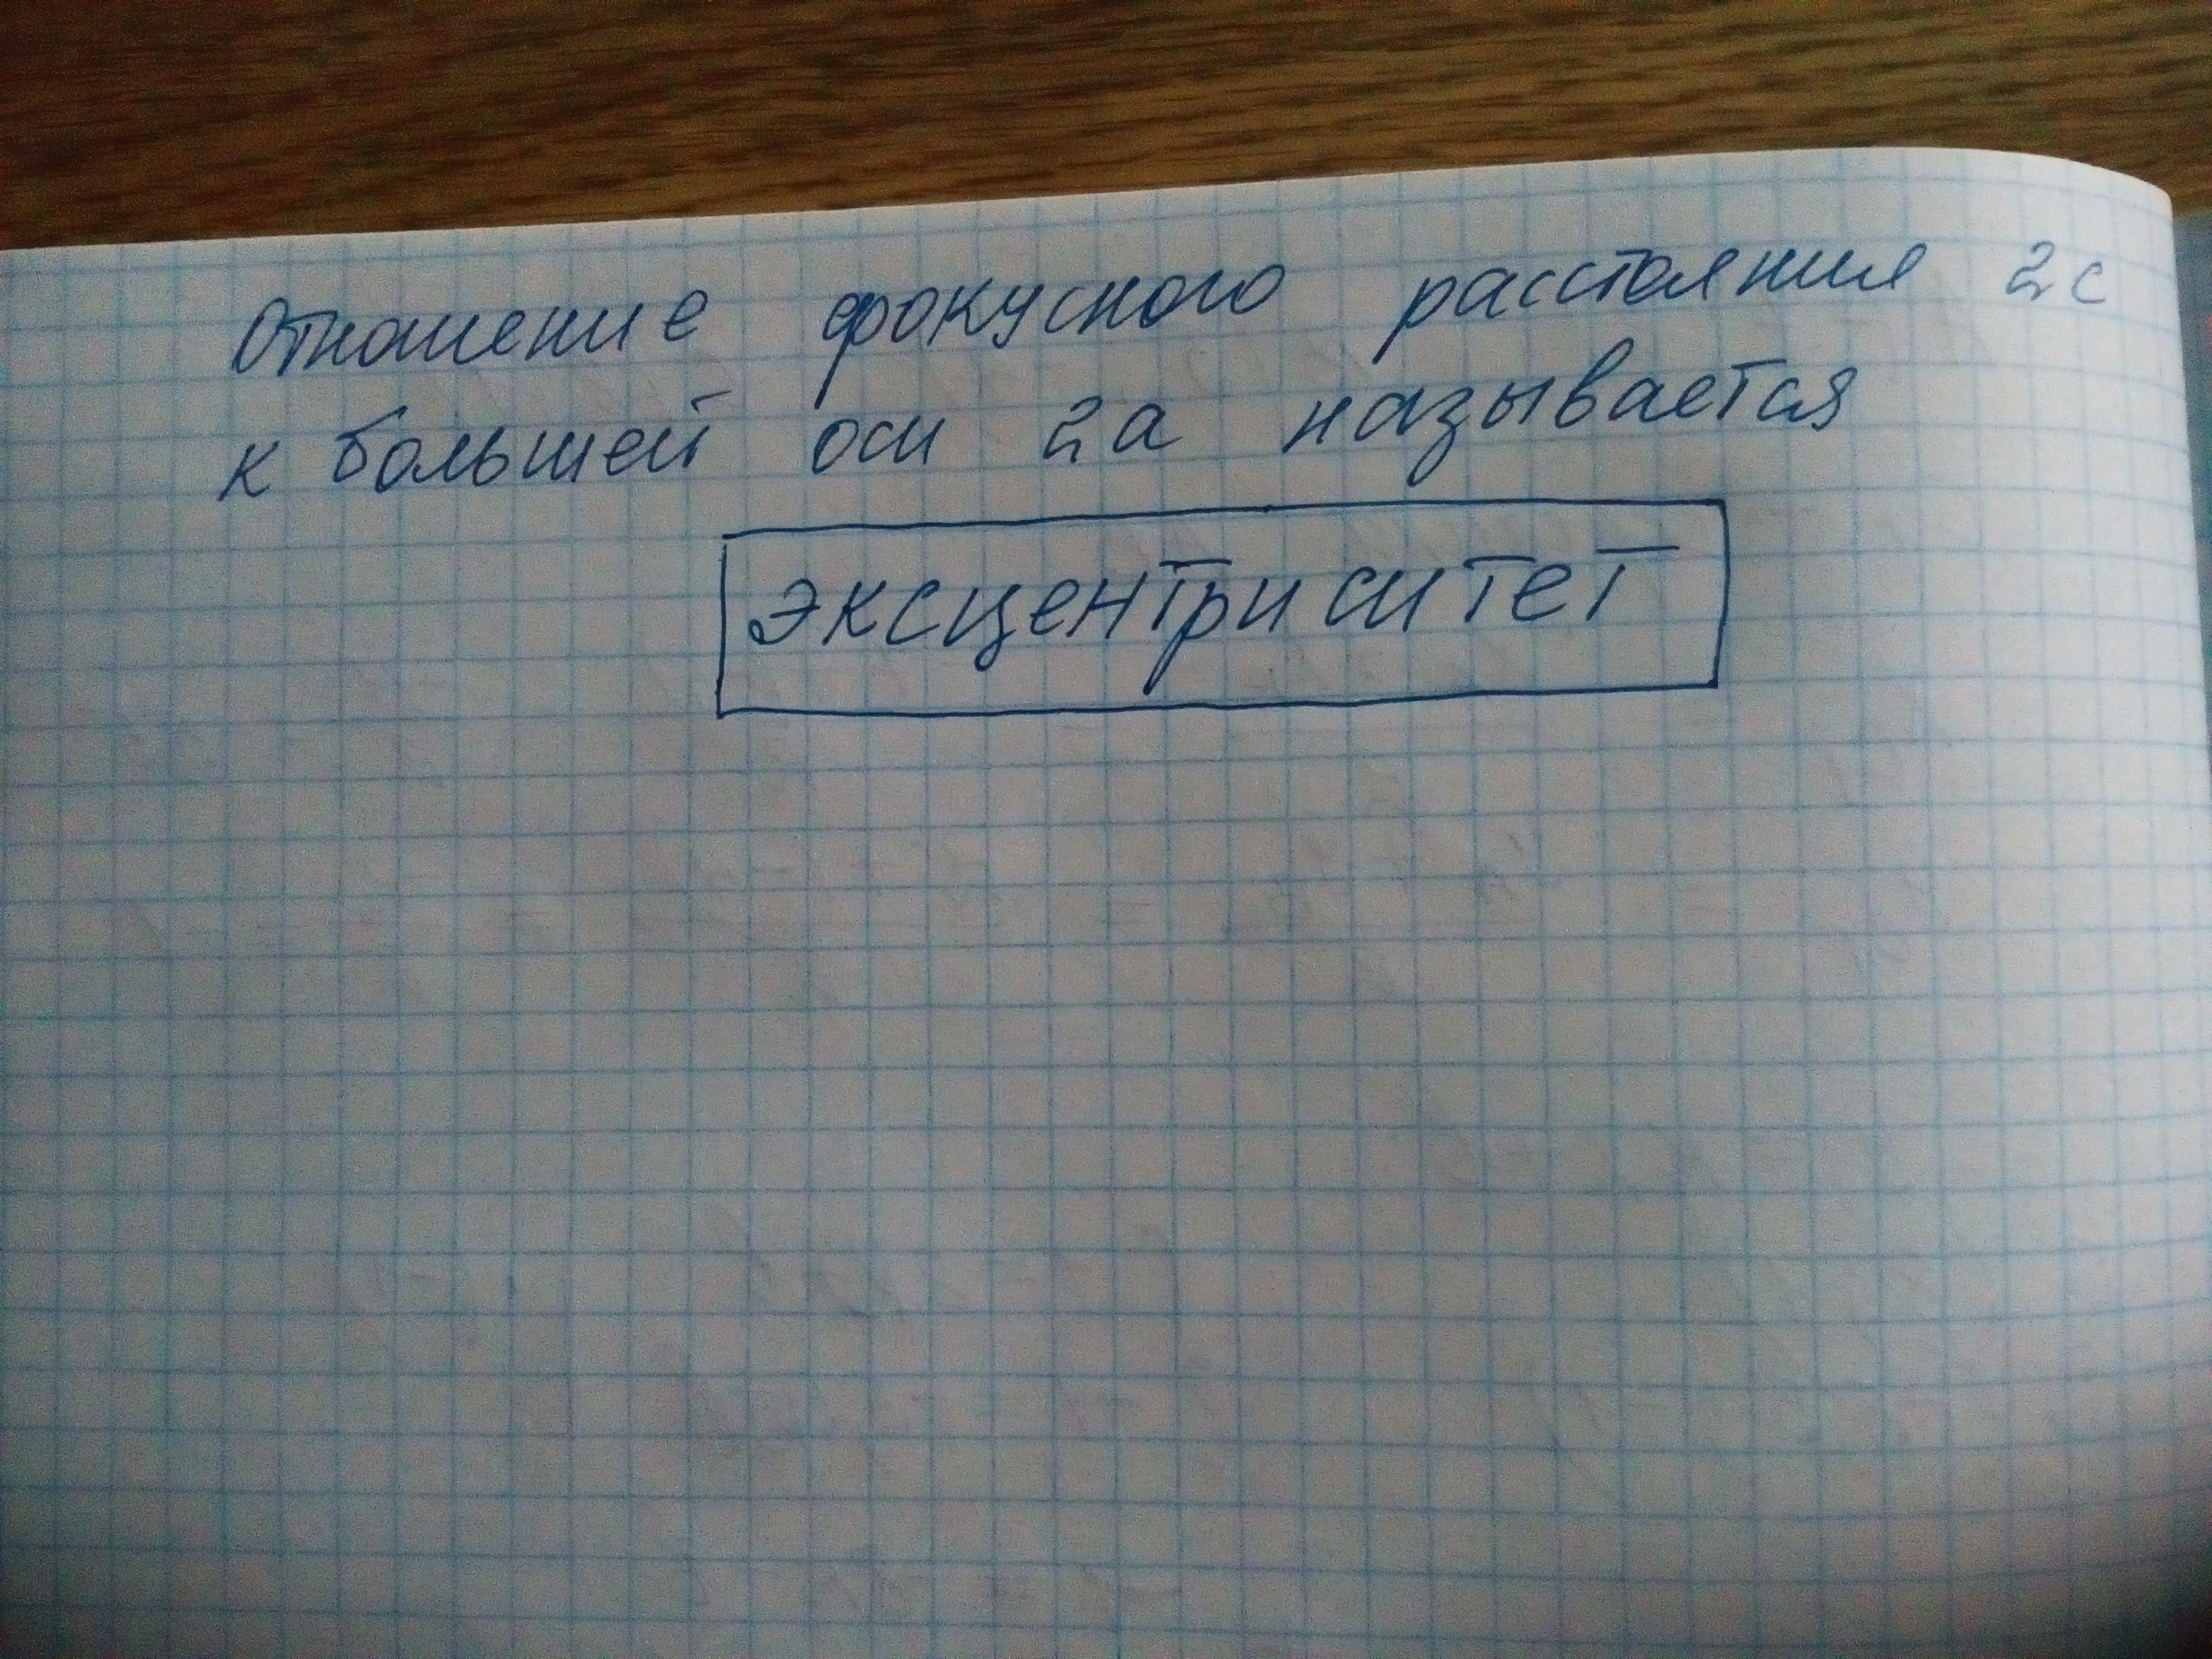 Отношение фокусного расстояния 2с
к большей оси 2а называется
эксцентриситет